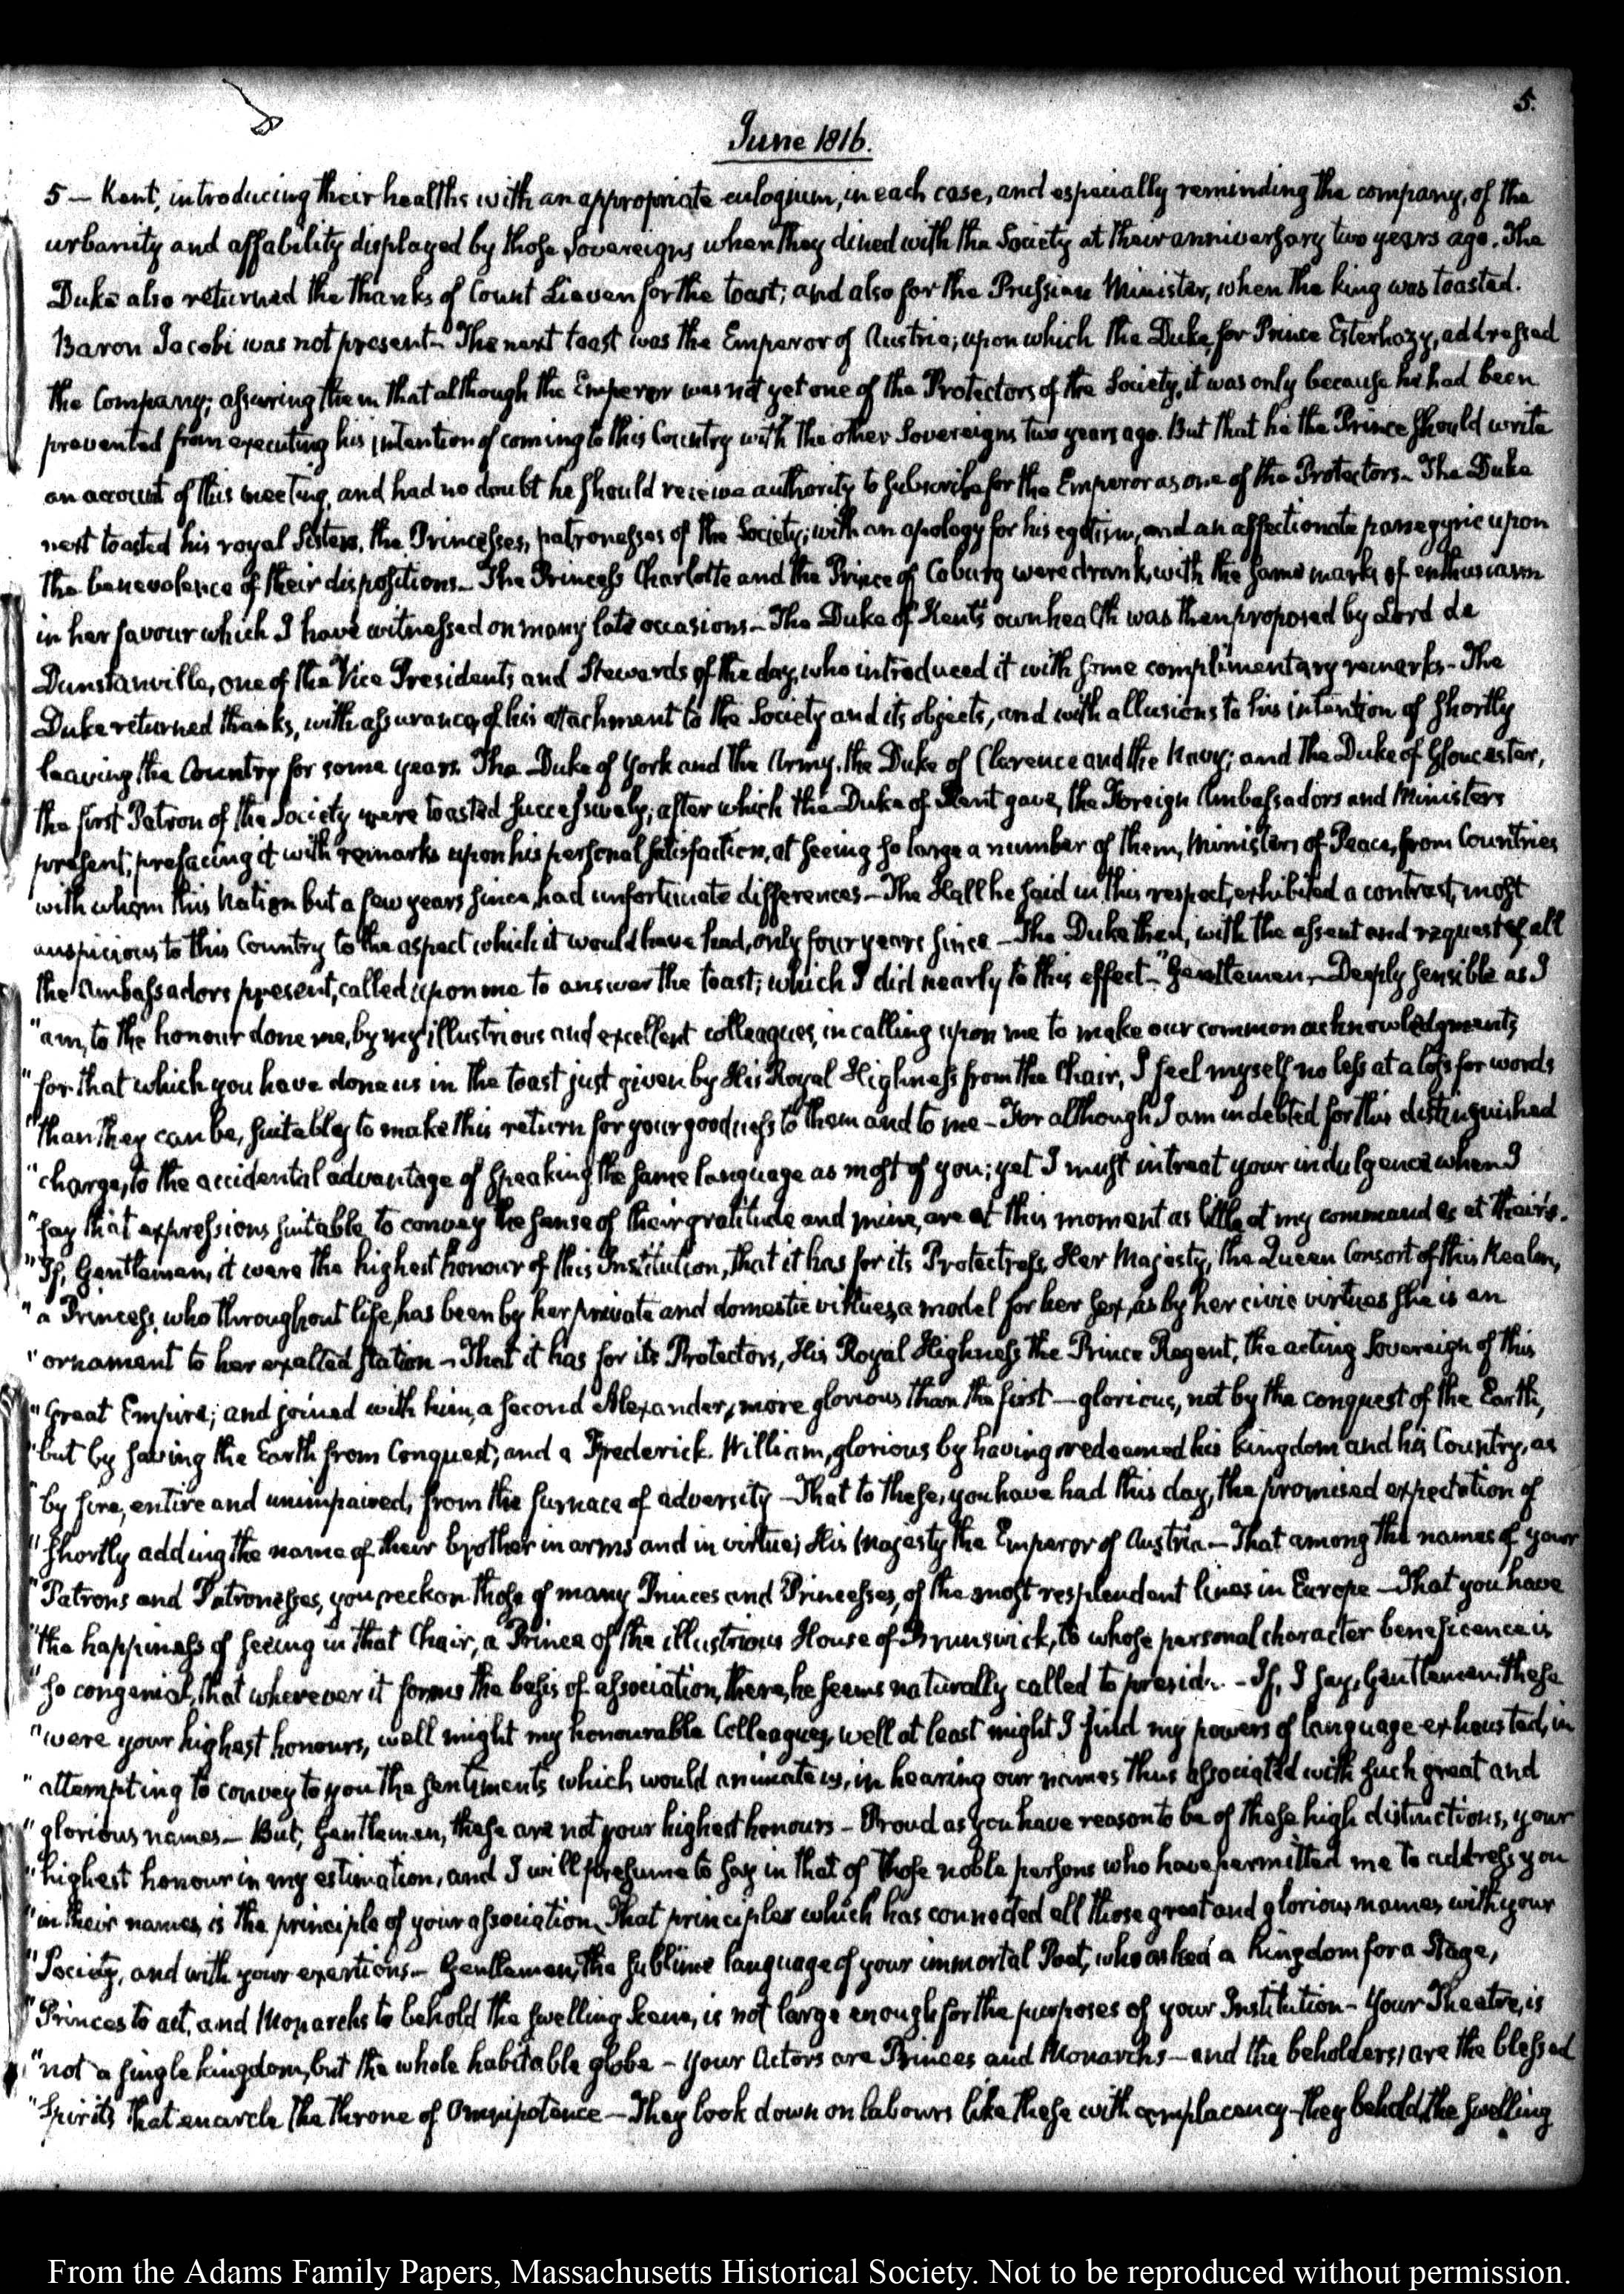 5.
June 1816.
5 — Kent, introducing their healths with an appropriate eulogium, in each case, and especially reminding the company, of the
urbanity and affability displayed by those Sovereigns when they dined with the Society at their anniversary two years ago. The
Duke also returned the thanks of Count Lieven for the toast; and also for the Prussian Minister, when the king was toasted.
Baron Jacobi was not present — The next toast was the Emperor of Austria; upon which the Duke, for Prince Esterhazy, addressed
the Company; assuring them that although the Emperor was not yet one of the Protectors of the Society, it was only because he had been
prevented from executing his intention of coming to this Country with the other Sovereigns two years ago. But that he the Prince should write
an account of this meeting, and had no doubt he should receive authority to subscribe for the Emperor as one of the Protectors — The Duke
next toasted his royal Sisters, the Princesses, patronesses of the Society; with an apology for his egotism, and an affectionate panegyric upon
the benevolence of their dispositions — The Princess Charlotte and the Prince of Coburg were drank, with the same marks of enthusiasm
in her favour which I have witnessed on many late occasions — The Duke of Kent's own health was then proposed by Lord de
Dunstanville, one of the Vice Presidents and Stewards of the day, who introduced it with some complimentary remarks — The
Duke returned thanks, with assurances of his attachment to the Society and its objects, and with allusions to his intention of shortly
leaving the Country for some years. The Duke of York and the Army, the Duke of Clarence and the Navy; and the Duke of Gloucester,
the first Patron of the Society were toasted successively; after which the Duke of Kent gave, the Foreign Ambassadors and Ministers
present, prefacing it with remarks upon his personal satisfaction, at seeing so large a number of them, Ministers of Peace, from Countries
with whom this Nation but a few years since, had unfortunate differences — The Hall he said in this respect, exhibited a contrast, most
auspicious to this Country to the aspect which it would have had, only four years since — The Duke then, with the assent and request of all
the Ambassadors present, called upon me to answer the toast; which I did nearly to this effect — "Gentlemen — Deeply sensible as I
"am, to the honour done me, by my illustrious and excellent colleagues, in calling upon me to make our common acknowledgments,
"for that which you have done us in the toast just given by His Royal Highness from the Chair, I feel myself no less at a loss for words
"than they can be, suitably to make this return for your goodness to them and to me — For although I am indebted for this distinguished
"charge, to the accidental advantage of speaking the same language as most of you; yet I must intreat your indulgence when I
"say that expressions suitable to convey the sense of their gratitude and mine, are at this moment as little at my command as at their's.
"If, Gentlemen, it were the highest honour of this Institution, that it has for its Protectress, Her Majesty, the Queen Consort of this Realm,
"a Princess, who throughout life, has been by her private and domestic virtues, a model for her sex, as by her civic virtues she is an
"ornament to her exalted station — That it has for its Protectors, His Royal Highness the Prince Regent, the acting Sovereign of this
"Great Empire; and joined with him, a second Alexander, more glorious than the first — glorious, not by the conquest of the Earth,
"but by saving the Earth from Conquest; and a Frederick William, glorious by having redeemed his kingdom and his Country, as
"by fire, entire and unimpaired, from the furnace of adversity — That to these, you have had this day, the promised expectation of
"shortly adding the name of their brother in arms and in virtue; His Majesty the Emperor of Austria — That among the names of your
"Patrons and Patronesses, you reckon those of many Princes and Princesses, of the most resplendent lines in Europe — That you have
"the happiness of seeing in that Chair, a Prince of the illustrious House of Brunswick, to whose personal character beneficence is
"so congenial, that wherever it forms the basis of association, there, he seems naturally called to preside — If, I say, Gentlemen these
"were your highest honours, well might my honourable Colleagues, well at least might I find my powers of language exhausted, in
"attempting to convey to you the sentiments which would animate us, in hearing our names thus associated with such great and
"glorious names — But, Gentlemen, these are not your highest honours — Proud as you have reason to be of these high distinctions, your
"highest honour in my estimation, and I will presume to say in that of those noble persons who have permitted me to address you
"in their names, is the principle of your association, That principle which has connected all those great and glorious names with your
"Society, and with your exertions — Gentlemen, the sublime language of your immortal Poet, who asked a kingdom for a Stage,
"Princes to act, and Monarchs to behold the swelling Scene, is not large enough for the purposes of your Institution — Your Theatre, is
"not a single kingdom, but the whole habitable globe — Your Actors are Princes and Monarchs — and the beholders, are the blessed
"Spirits that encircle the throne of Omnipotence — They look down on labours like these with complacency — they behold, the swelling
From the Adams Family Papers, Massachusetts Historical Society. Not to be reproduced without permission.